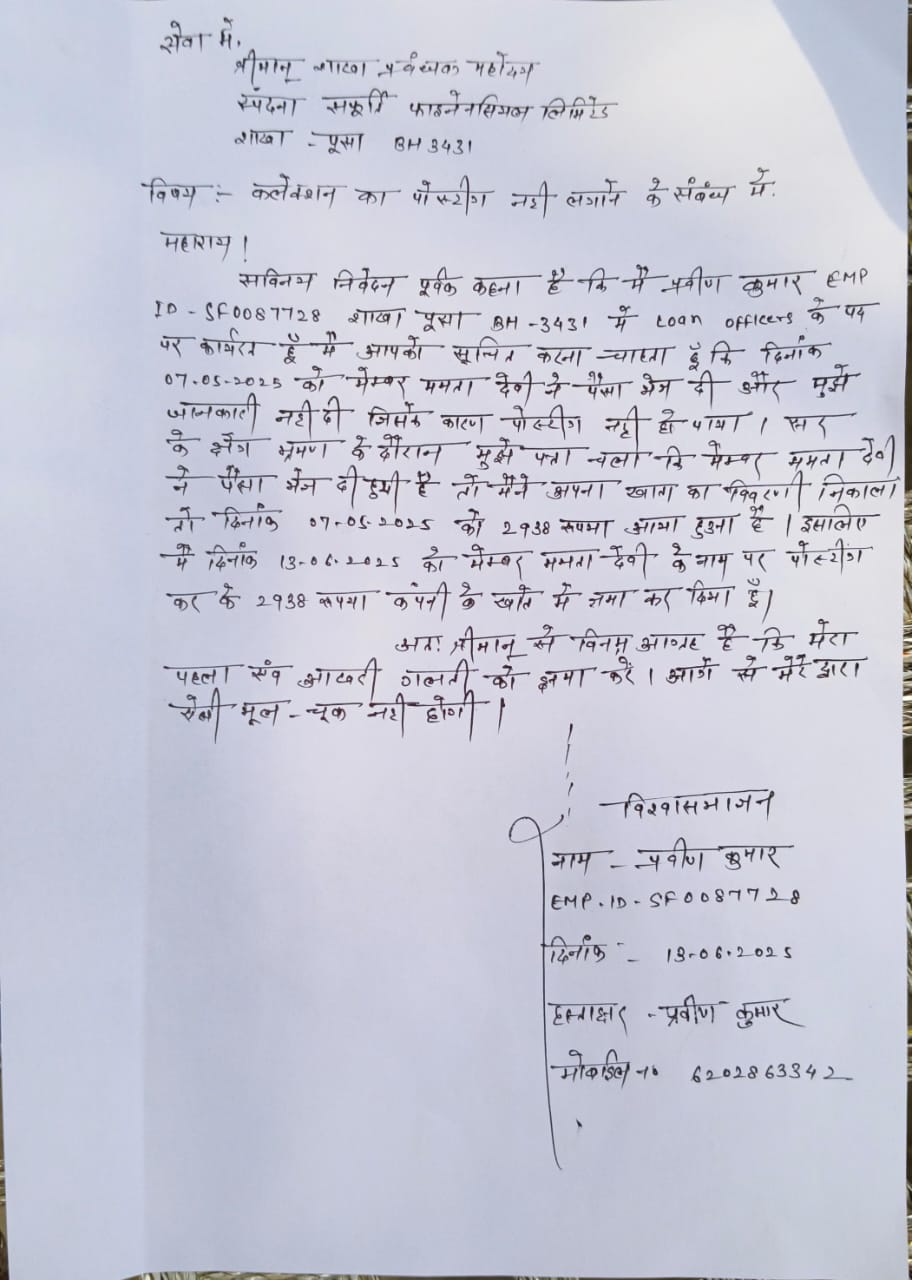 सेवा में,
श्रीमान् शाखा प्रबंधक महोदय
स्पंदना स्फूर्ति फाइनेनसियल लिमिटेड
शाखा - पूसा BH 3431
विषय :- कलेक्शन का पोस्टींग नही लगाने के संबंध में.
महाशय !
सविनय निवेदन पूर्वक कहना है कि मै प्रवीण कुमार EMP
ID - SF0087728 शाखा पूसा BH -3431 में Loan officers के पद
पर कार्यरत हूँ मै आपको सूचित करना चाहता हूँ कि दिनांक
07.05.2025 को मेम्बर ममता देवी ने पैसा भेज दी और मुझे
जानकारी नही दी जिसके कारण पोस्टींग नही हो पाया । सर
के क्षेत्र भ्रमण के दौरान मुझे पता चला कि मेम्बर ममता देवी
ने पैसा भेज दी हुयी है तो मैने अपना खाता का विवरणी निकाला
तो दिनांक 07-05-2025 को 2938 रूपया आया हुआ है । इसलिए
मै दिनांक 13-06-2025 को मेम्बर ममता देवी के नाम पर पोस्टींग
कर के 2938 रूपया कंपनी के खाते में जमा कर दिया हूँ।
अतः श्रीमान् से विनम्र आग्रह है कि मेरा
पहला एवं आखरी गलती को क्षमा करें । आगे से मेरे द्वारा
ऐसी भूल - चूक नही होगी ।
विश्वासभाजन
नाम - प्रवीण कुमार
EMP. ID - SF0087728
दिनांक - 13-06-2025
हस्ताक्षर - प्रवीण कुमार
मोबाईल न० 6202863342